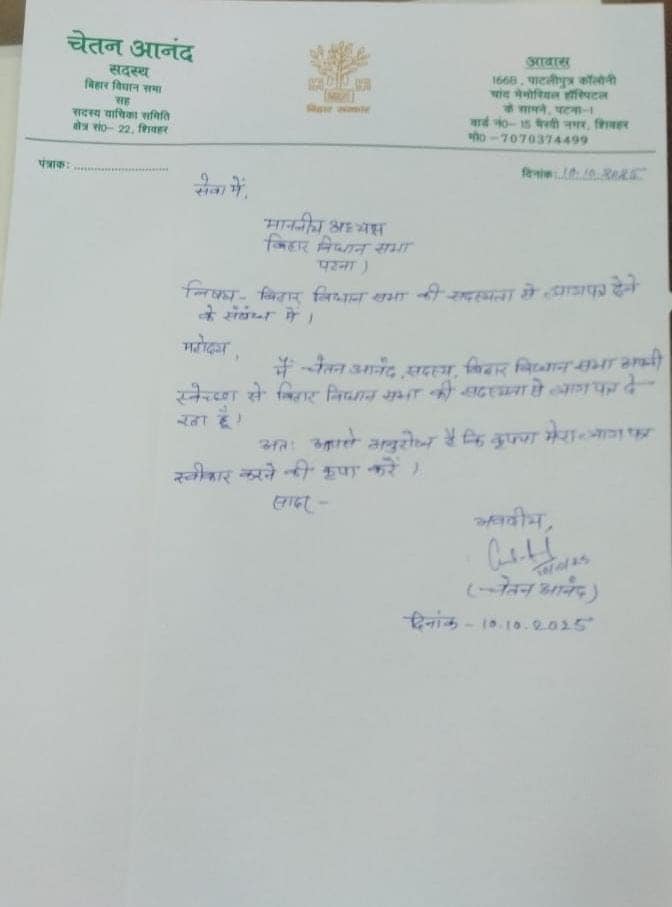 चेतन आनंद
सदस्य
बिहार विधान सभा
सह
सदस्य याचिका समिति
क्षेत्र सं०- 22, शिवहर
बिहार सरकार
आवास
166B, पाटलीपुत्र कॉलोनी
चांद मेमोरियल हॉस्पिटल
के सामने, पटना-1
वार्ड नं०- 15 भैरवी नगर, शिवहर
मो०-7070374499
पंत्राक: ............................
दिनांक: 10.10.2025
सेवा में,
माननीय अध्यक्ष
बिहार विधान सभा
पटना।
विषय- बिहार विधान सभा की सदस्यता से त्यागपत्र देने
के संबंध में।
महोदय,
मैं चेतन आनंद, सदस्य, बिहार विधान सभा अपनी
स्वेच्छा से बिहार विधान सभा की सदस्यता से त्याग पत्र दे
रहा हूँ।
अतः आपसे अनुरोध है कि कृपया मेरा त्याग पत्र
स्वीकार करने की कृपा करें।
सादर -
भवदीय,
(चेतन आनंद)
दिनांक - 10.10.2025